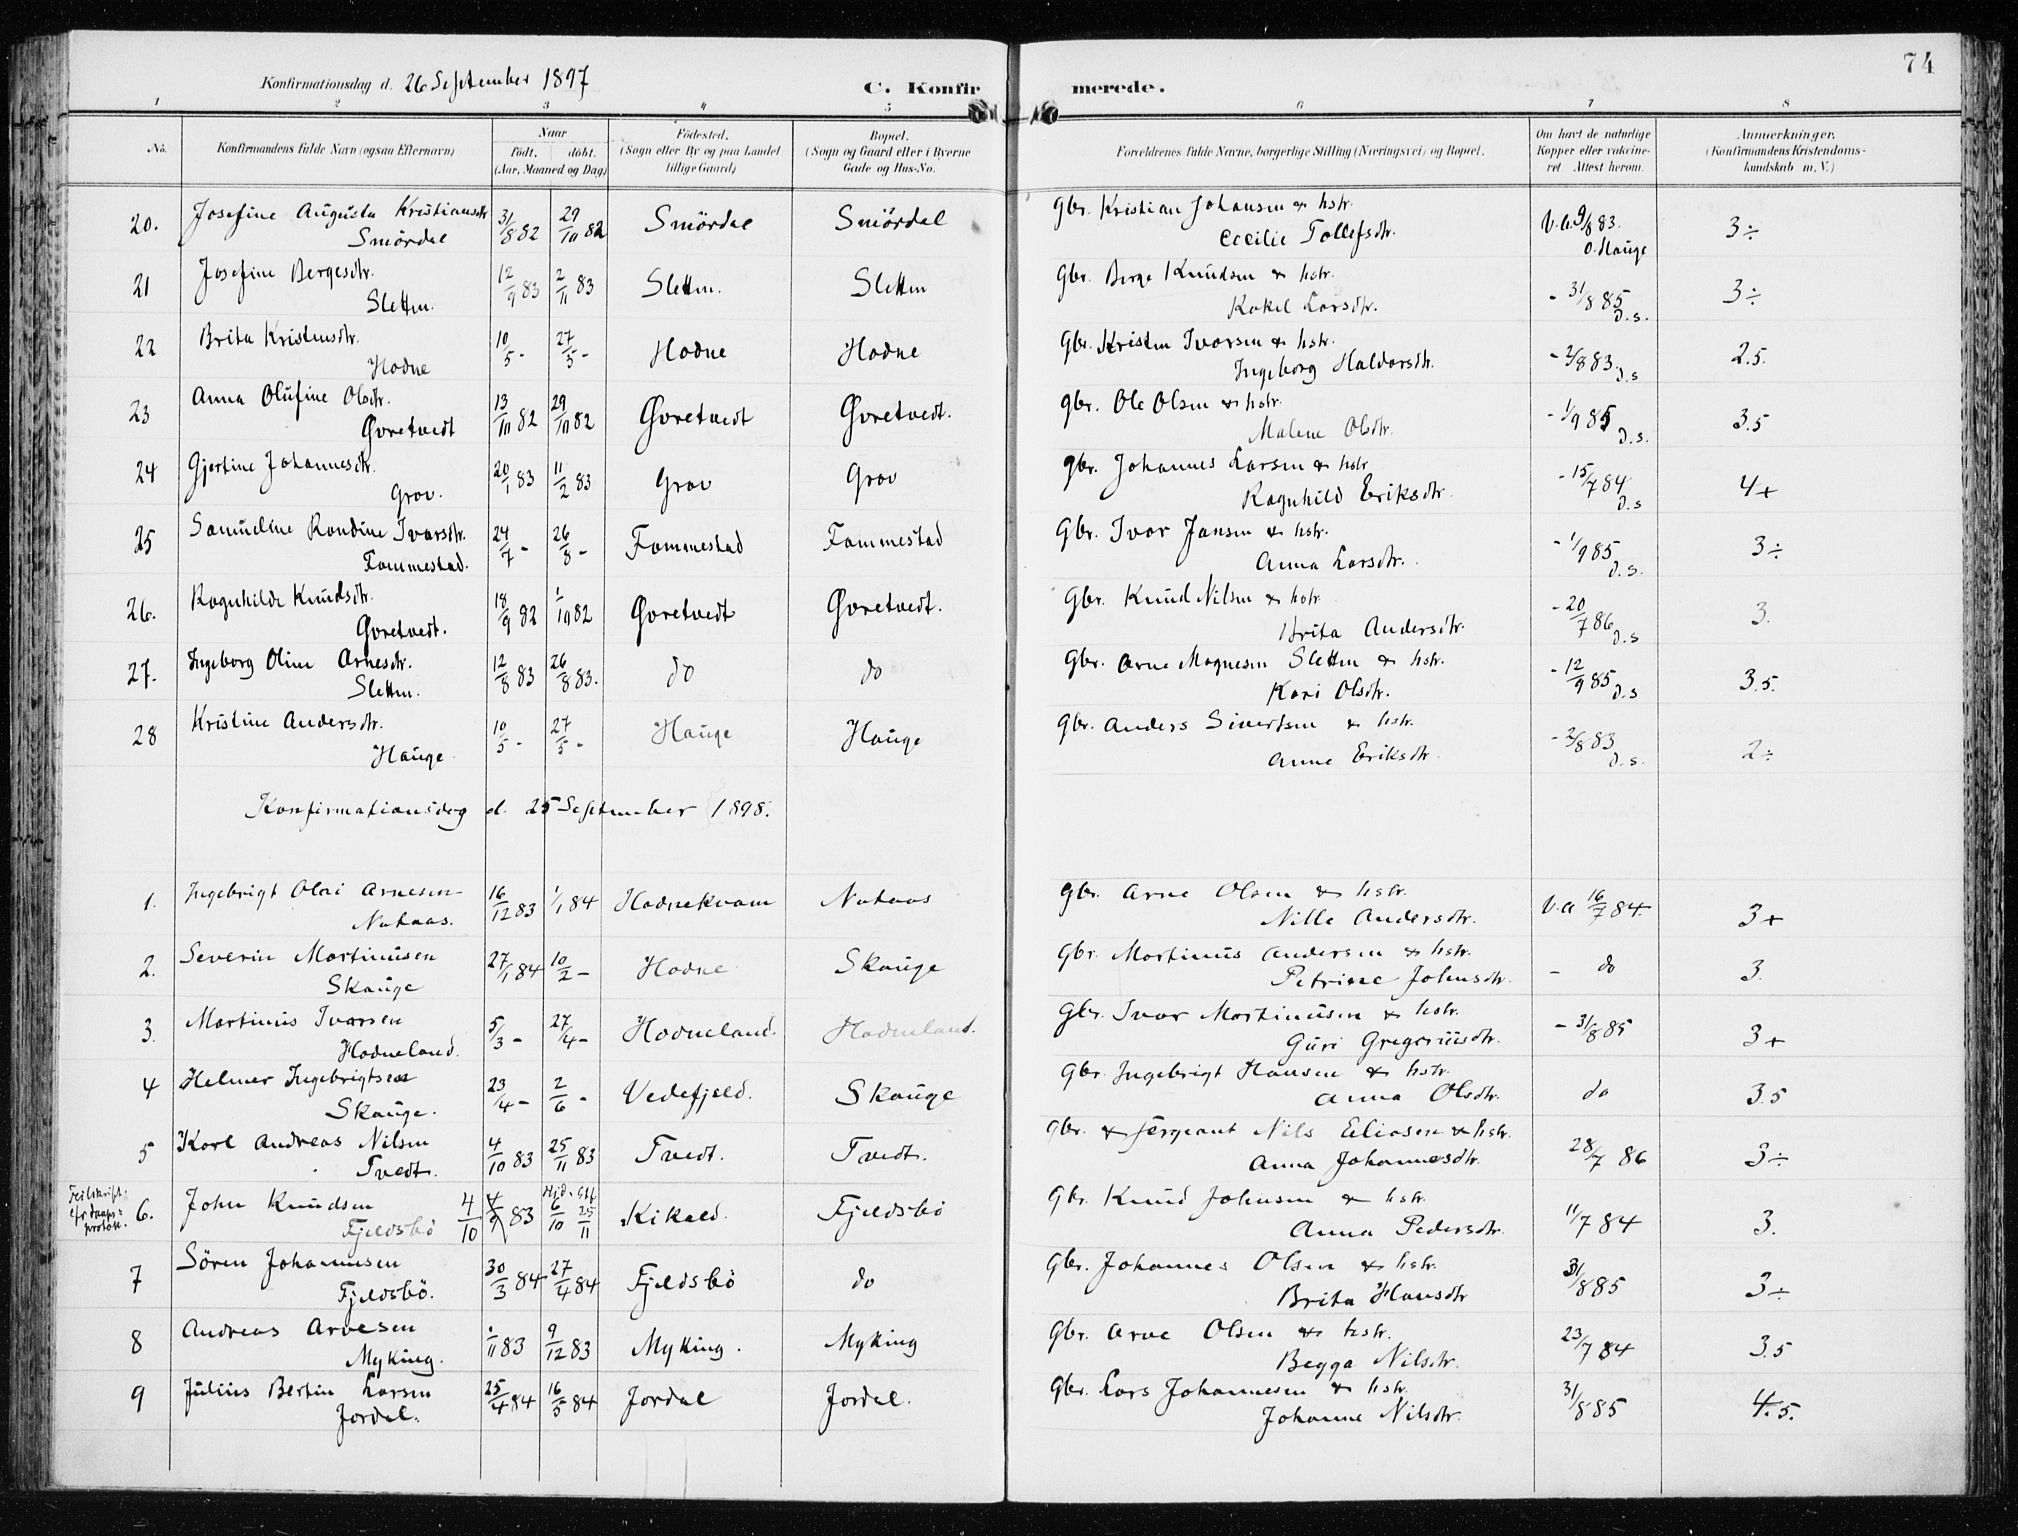 74
Konfirmationsdag d. 26 September 1897
C. Konfirmerede.
1 2 3 4 5 6 7 8
No. Konfirmandens fulde Navn (ogsaa Efternavn) Naar født. døbt. (Aar, Maaned og Dag) Fødested. (Sogn eller By og paa Landet tillige Gaard) Bopæl. (Sogn og Gaard eller i Byerne Gade og Hus-No. Forældrenes fulde Navne, borgerlige Stilling (Næringsvei) og Bopæl. Om havt de naturlige Kopper eller vakcineret. Attest herom. Anmærkninger. (Konfirmandens Kristendomskundskab m. V.)
20. Josefine Augusta Kristiansdtr. 31/8 82 29/10 82 Smördal Smördal Gbr. Kristian Johansen & hstr. V.a. 9/8 83. 3÷
Smördal Cecilie Tollefsdtr. O. Hauge
21 Josefine Bergesdtr. 12/9 83 2/11 83 Sletten. Sletten Gbr. Berge Knudsen & hstr. - 31/8 85 3÷
Sletten. Rakel Larsdtr. d.s.
22 Brita Kristensdtr. 10/5 - 27/5 - Hodne Hodne Gbr. Kristen Ivarsen & hstr. - 2/8 83. 2.5.
Hodne Ingeborg Haldorsdtr. d.s
23 Anna Olufine Olsdtr. 13/10 82 29/10 82 Qvretvedt Qvretvedt. gbr. Ole Olsen & hstr. - 1/9 85 3.5
Qvretvedt Malene Olsdtr. d.s.
24 Gjertine Johannesdtr. 20/1 83 11/2 83 Grov Grov gbr. Johannes Larsen & hstr - 15/7 84 4+
Grov. Ragnhild Eriksdtr. d.s
25 Samueline Randine Ivarsdtr. 24/7 - 26/8 - Fammestad Fammestad Gbr. Ivar Jansen & hstr. - 1/9 85 3÷
Fammestad. Anna Larsdtr. d.s.
26. Ragnhilde Knudsdtr. 18/9 82 1/10 82 Qvretvedt Qvretvedt. Gbr. Knud Nilsen & hstr. - 20/7 86 3.
Qvretvedt. Brita Andersdtr. d.s
27. Ingeborg Oline Arnesdtr. 12/8 83 26/8 83. do do Gbr. Arne Magnesen Sletten & hstr. - 12/9 85 3.5.
Sletten. Kari Olsdtr. d.s
28 Kristine Andersdtr. 10/5 - 27/5 - Hauge Hauge Gbr. Anders Sivertsen & hstr. - 2/8 83 2÷
Hauge Anne Eriksdtr. d.s.
Konfirmationsdag d. 25 September 1898.
1. Ingebrigt Olai Arnesen 16/12 83 1/1 84 Hodnekvam Nataas gbr. Arne Olsen & hstr. V.a 16/7 84. 3+
Nataas. Nille Andersdtr.
2. Severin Martinusen 27/1 84 10/2 - Hodne Skauge Gbr. Martinus Andersen & hstr. - do 3.
Skauge Petrine Johnsdtr.
3. Martinus Ivarsen 5/3 - 27/4 - Hodneland. Hodneland. Gbr. Ivar Martinusen & hstr. - 31/8 85 3+
Hodneland. Guri Gregoriusdtr.
4 Helmer Ingebrigtsen 23/4 - 2/6 - Vedefjeld. Skauge Gbr. Ingebrigt Hansen & hstr. do 3.5
Skauge. Anna Olsdtr.
5 Karl Andreas Nilsen 4/10 83 25/11 83 Tvedt. Tvedt. Gbr. & sergeant Nils Eliasen & hstr. 28/7 86 3÷
Tvedt. Anna Johannesdtr.
Feilskrift. efr daaps= protok. 6. John Knudsen 4/10 4/9 83 Hjd. 6/10 Stf 25/11 Kikeld. Fjeldsbö Gbr. Knud Johnsen & hstr. 11/7 84 3.
Fjeldsbö Anna Pedersdtr.
7 Sören Johannesen 30/3 84 27/4 84 Fjeldsbö do Gbr. Johannes Olsen & hstr. 31/8 85 3÷
Fjeldsbö. Brita Hansdtr
8 Andreas Arvesen /11 83 9/12 83 Myking. Myking Gbr. Arve Olsen & hstr. 23/7 84 3.5
Myking. Begga Nilsdtr.
9 Julius Bertin Larsen 25/4 84 16/5 84 Jordal Jordal. Gbr. Lars Johannesen & hstr. 31/8 85 4.5.
Jordal. Johanne Nilsdtr.